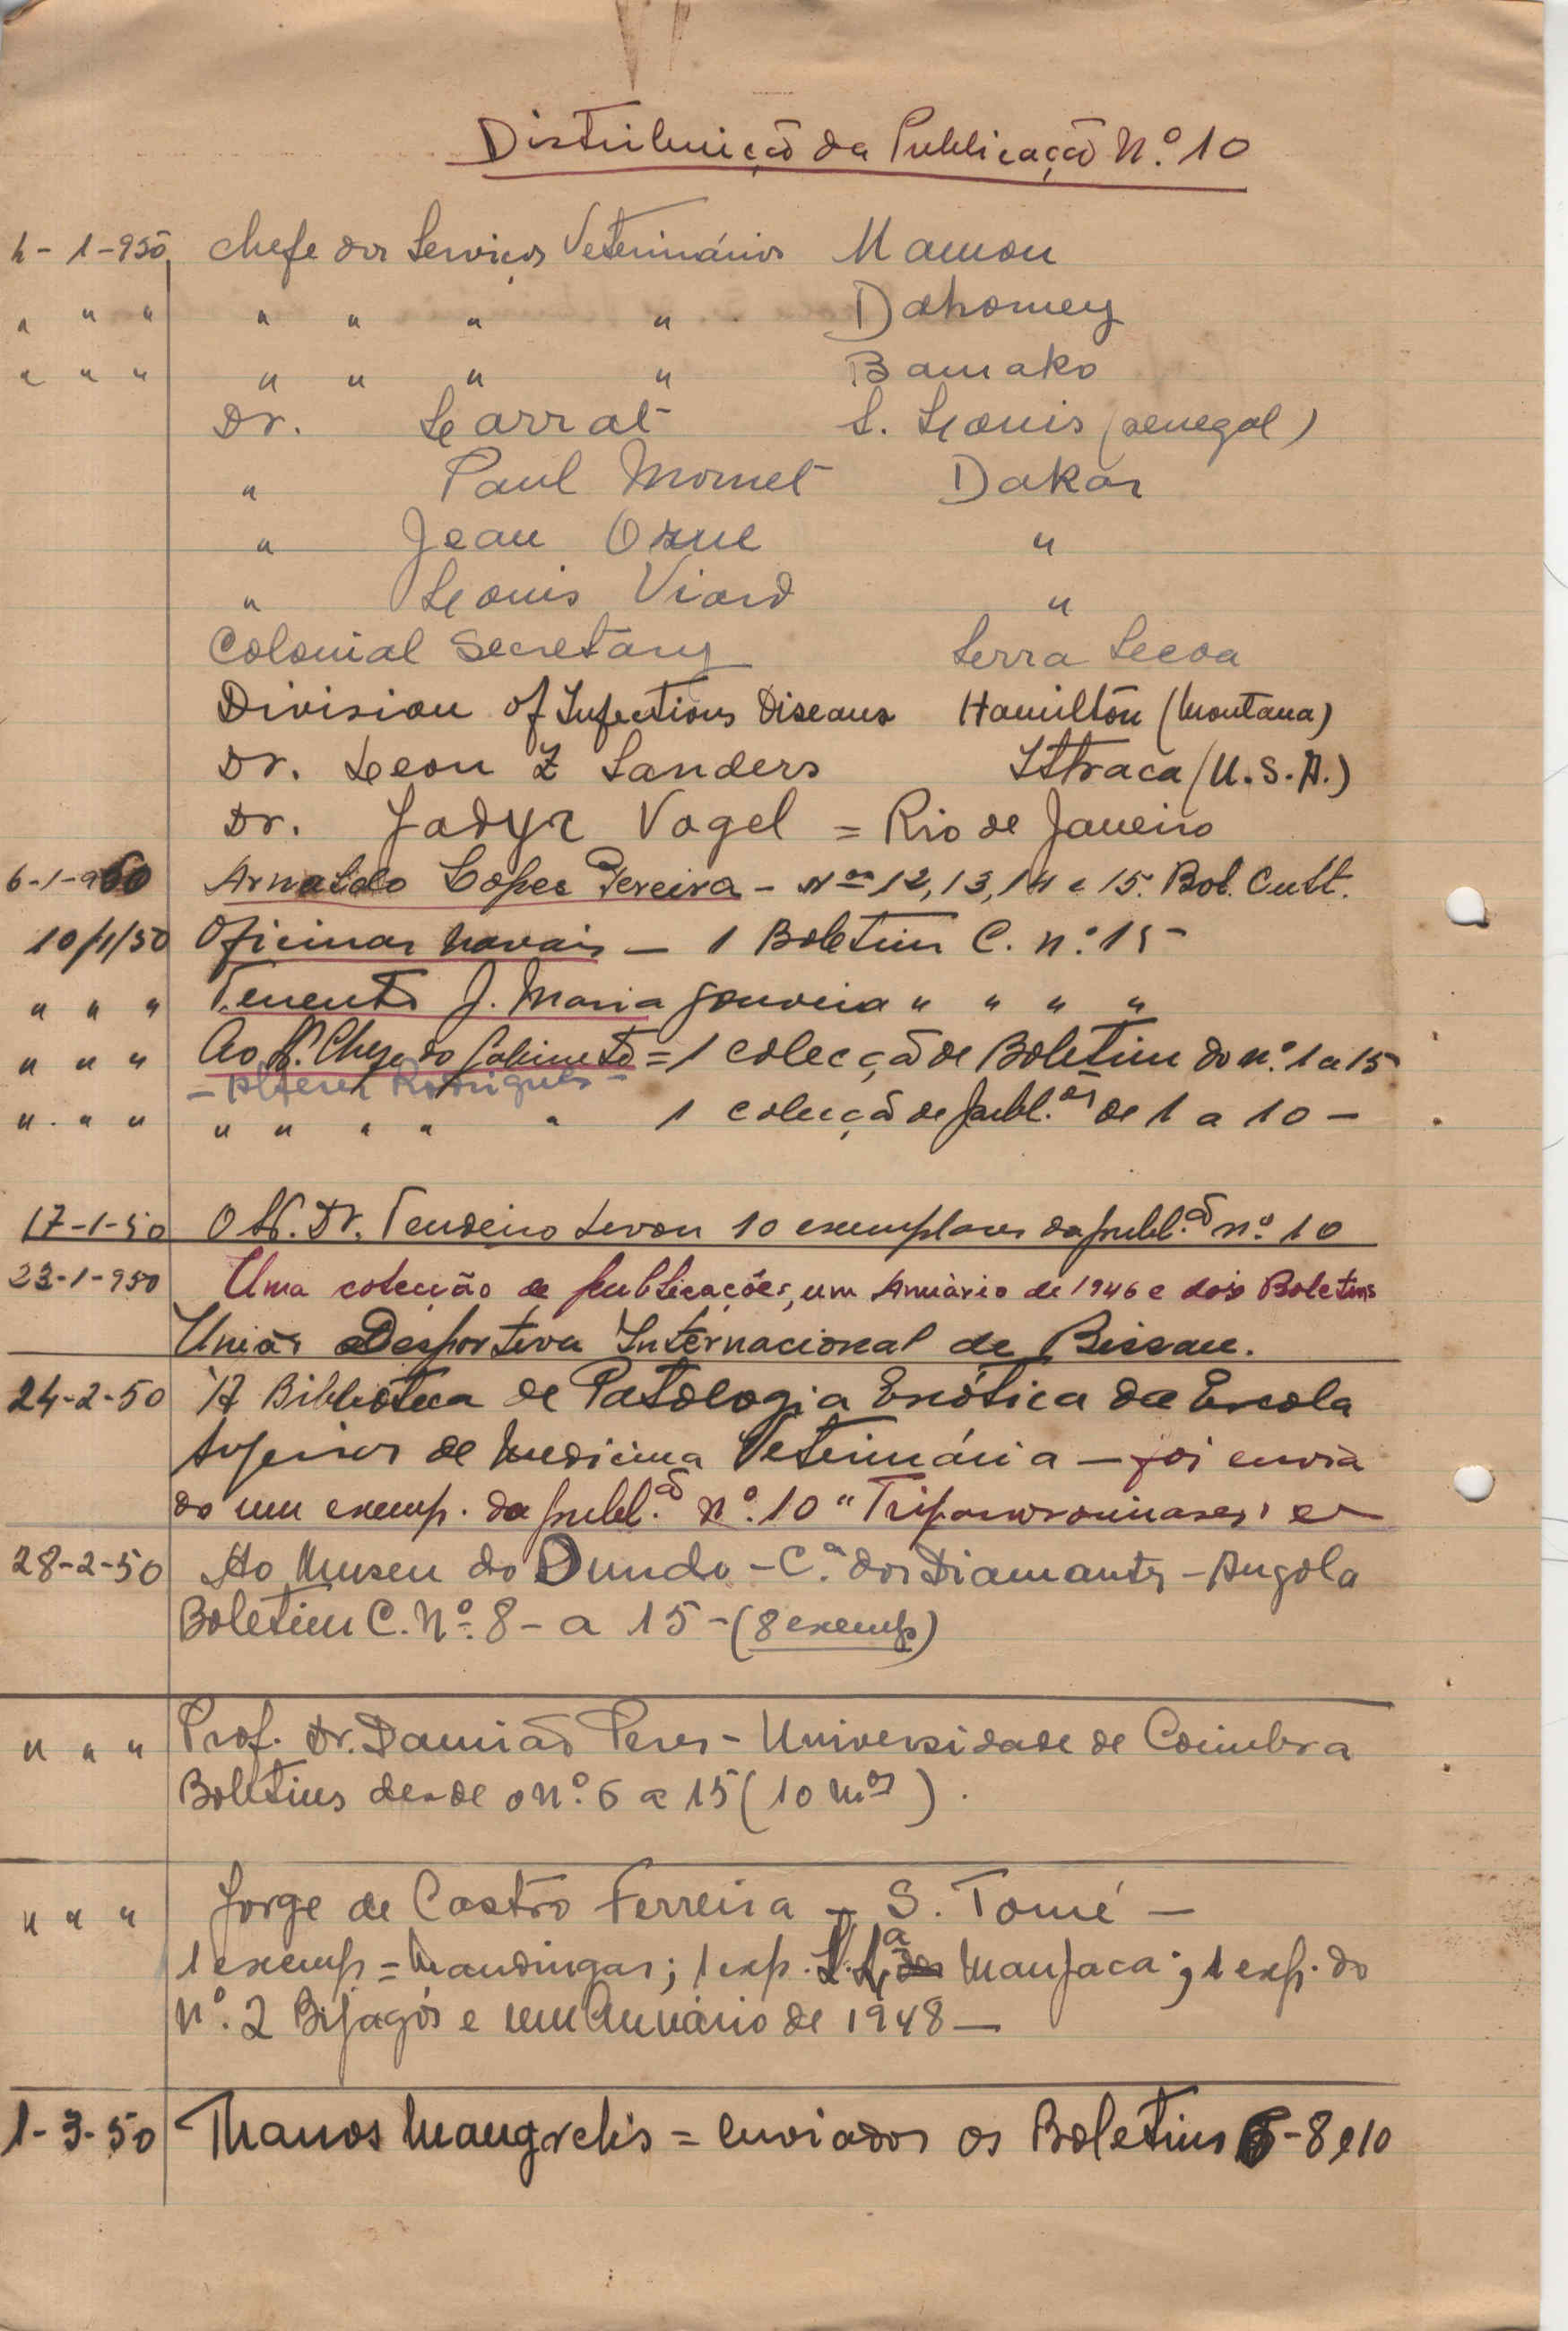 Distribuição da Publicação N.º 10
4-1-950 Chefe dos Serviços Veterinários Mamou
" " " " " " " Dahomey
" " " " " " " Bamako
Dr. Larrat S. Louis (senegal)
" Paul Mornet Dakar
" Jean Orue "
" Louis Viard "
Colonial Secretary Serra Leoa
Division of Infectious Diseases Hamilton (Montana)
Dr. Leon Z Sanders Ithaca (U.S.A.)
Dr. Jadyr Vogel = Rio de Janeiro
6-1-950 Arnaldo Lopes Pereira - Nos 12, 13, 14 e 15. Bol. Cult.
10/1/50 Oficinas navais — 1 Boletim C. n.º 15
" " " Tenente J. Maria Gouveia " " " "
" " " Ao Sr. Chefe do Gabinete = 1 colecção de Boletim do n.º 1 a 15
- Alferes Rodrigues -
" " " " " " " " 1 colecção de publ.ões de 1 a 10 —
17-1-50 O Sr. Dr. Tendeiro levou 10 exemplares da publ.ão n.º 10
23-1-950 Uma colecção de publicações, um Anuário de 1946 e dois Boletins
União Desportiva Internacional de Bissau.
24-2-50 À Biblioteca de Patologia Exótica da Escola
Superior de Medicina Veterinária — foi envia
do um exemp. da publ.ão N.º 10 "Tripanosomiases"
28-2-50 Ao Museu do Dundo - C.ª dos Diamantes - Angola
Boletim C. N.º 8 - a 15 - (8 exemp)
" " " Prof. Dr. Damião Peres - Universidade de Coimbra
Boletins desde o N.º 6 a 15 (10 n.os).
" " " Jorge de Castro Ferreira - S. Tomé —
1 exemp = Mandingas; 1 exp. Manjaca; 1 exp. do
N.º 2 Bijagós e um Anuário de 1948 —
1-3-50 Thanos Mangrelis = enviados os Boletins 6 - 8 e 10